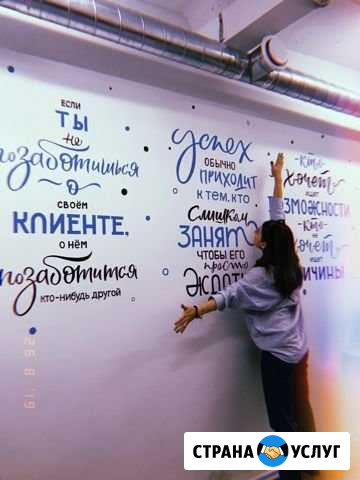 если
ты
не
позаботишься
о
своём
клиенте,
о нём
позаботится
кто-нибудь другой
успех
обычно
приходит
к тем, кто
слишком
занят
чтобы его
просто
ждать
кто
хочет
ищет
возможности
кто
не
хочет
ищет
причины
26 8 '19
СТРАНА УСЛУГ